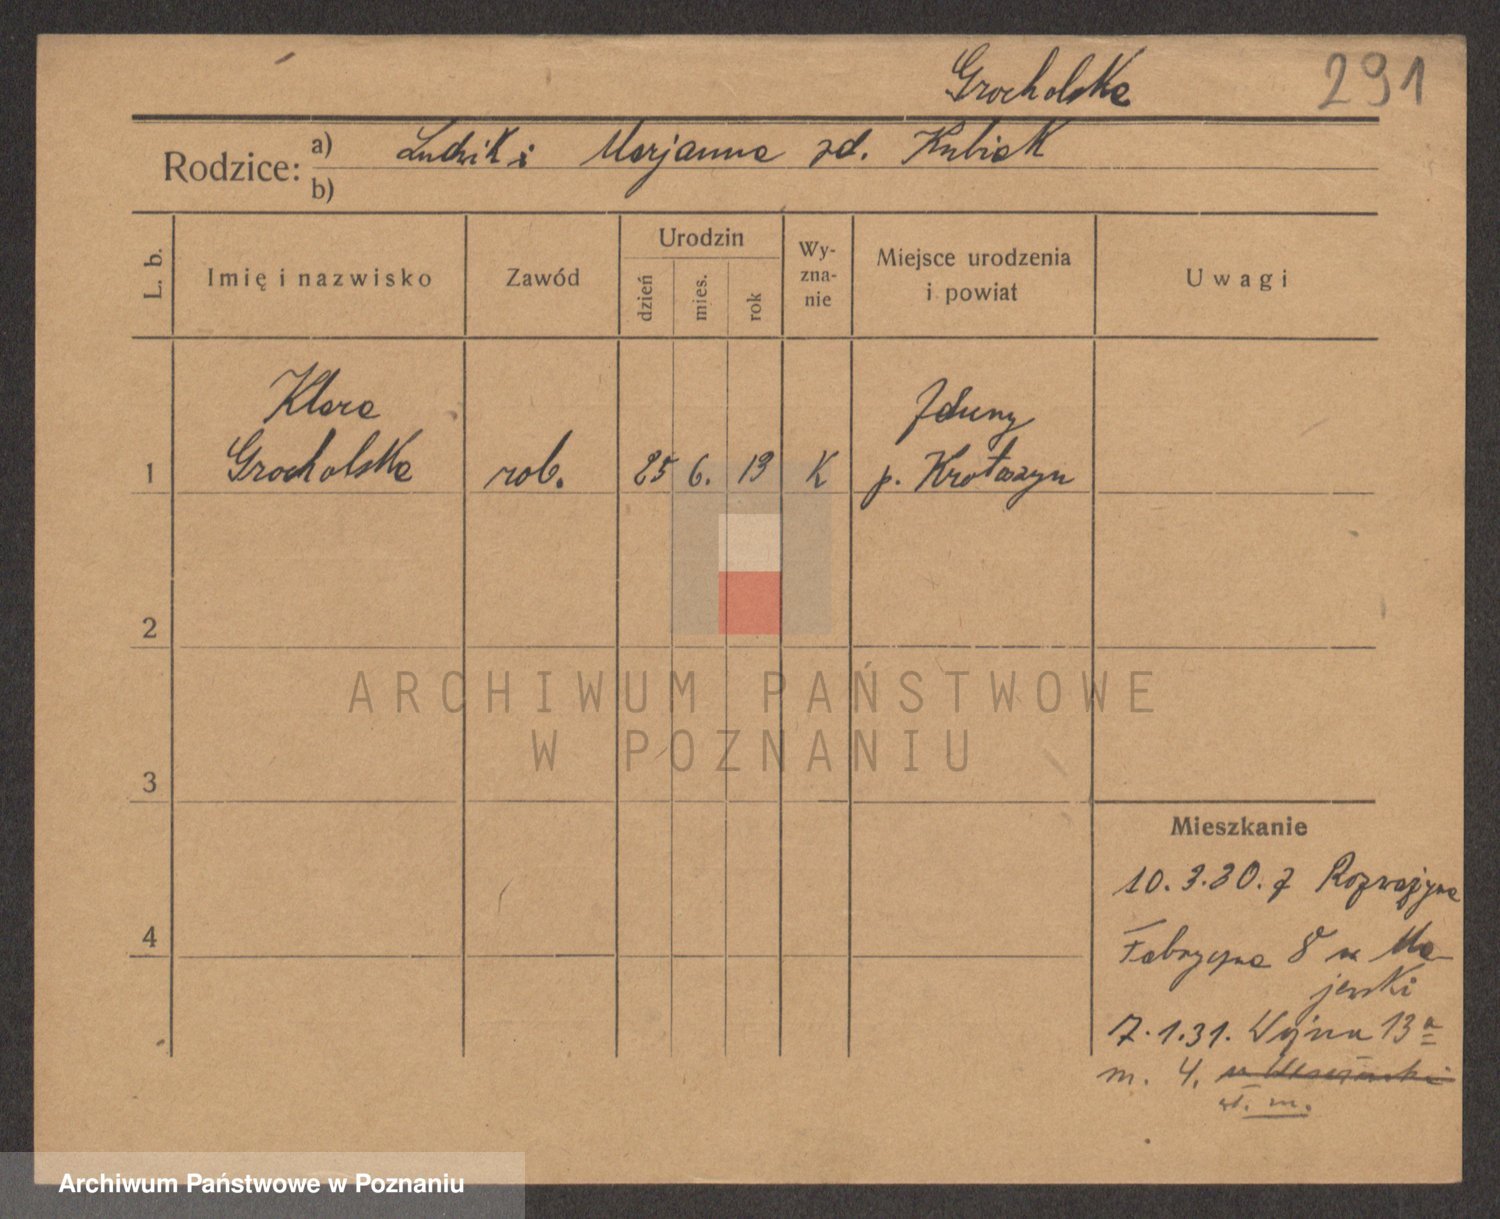 Grocholska 291
Rodzice: a) Ludwik i Marjanna zd. Kubiak
b)
L. b. Imię i nazwisko Zawód Urodzin dzień mies. rok Wy-zna-nie Miejsce urodzenia i powiat Uwagi
Klara Zduny
1 Grocholska rob. 25 6. 13 K p. Krotoszyn
2
ARCHIWUM PAŃSTWOWE
W POZNANIU
3
Mieszkanie
10.3.30. z
4
Fabryczna 8 u Ma-
jewski
7.1.31. 13 a
m. 4.
wł. m.
Archiwum Państwowe w Poznaniu